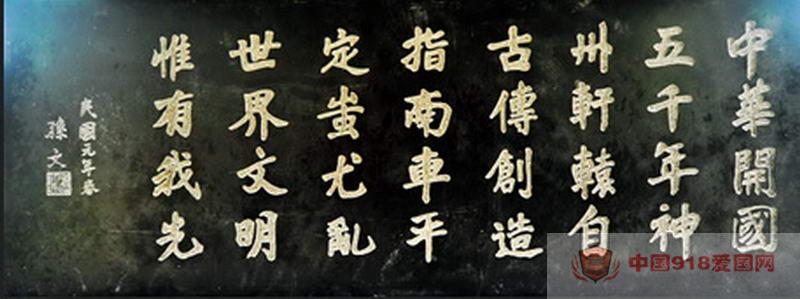 中華開國
五千年神
州軒轅自
古傳創造
指南車平
定蚩尤亂
世界文明
惟有我先
民國元年春
孫文
中国918爱国网